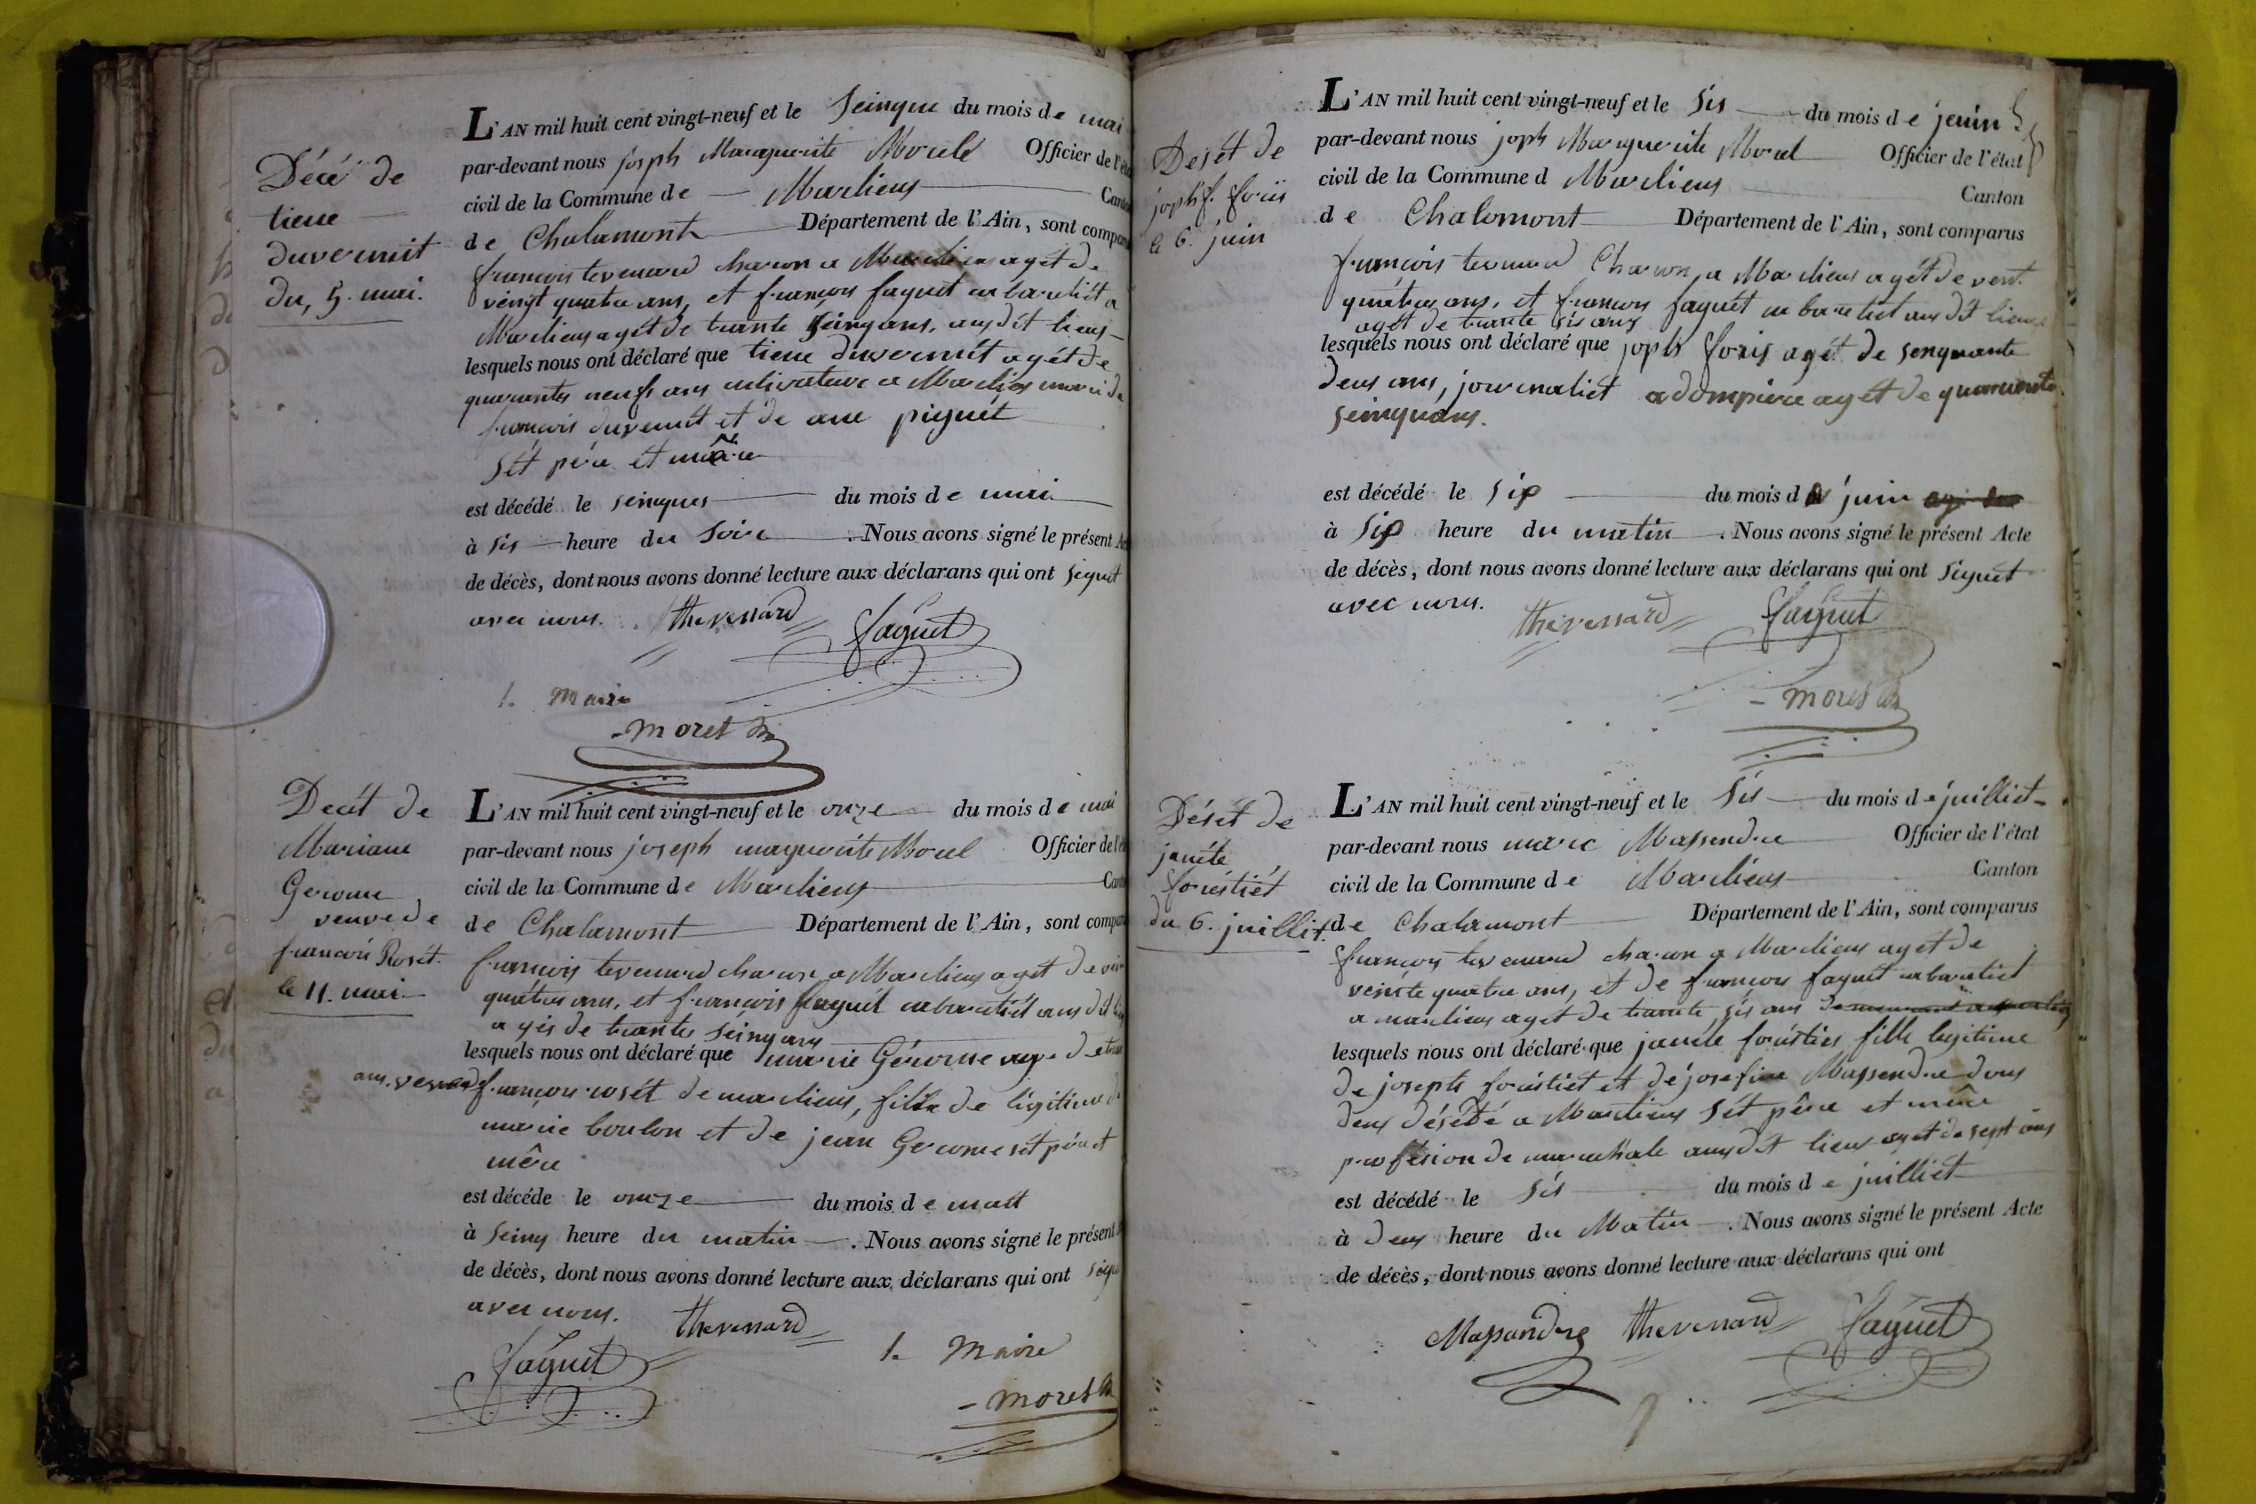 Décé de
tiene
duvernit
du, 5. mai.
L'AN mil huit cent vingt-neuf et le seinque du mois de mai
par-devant nous joseph Marguerite Morele Officier de l'éta
civil de la Commune de Marlieux Canton
de Chalamont Département de l'Ain, sont compar
françois tevenard charon a Marlieus agét de
veingt quatre ans, et françois faguet cabaretiét a
Marlieus agét de trante seinq ans, ausdit lieus
lesquels nous ont déclaré que tiene duvernit agét de
quarante neufs ans cultivateure a Marlieus mari de
françois duvernit et de ane piguét
sét père et mère
est décédé le seinques du mois de mai
à sis heure du soire . Nous avons signé le présent Ac
de décès, dont nous avons donné lecture aux déclarans qui ont siguet
avec nous. thevenard faguet
le Maire
Morel
Decét de
Mariane
Gerome
veuve de
françois Rosét.
le 11. mai
L'AN mil huit cent vingt-neuf et le onze du mois de mai
par-devant nous joseph marguerite Morel Officier de l'ét
civil de la Commune de Marlieus Cant
de Chalamont Département de l'Ain, sont compar
françois tevenard charon a Marlieus agét de
quatres ans, et françois faguét cabaretiét ausdit
agés de trantes seinq ans
lesquels nous ont déclaré que marie Gérome age de
ans. veuve de françois rosét de marlieus, fille de ligitime de
marie boulon et de jean Gerome sét père et
mère
est décéde le onze du mois de
à seinq heure du matin . Nous avons signé le présent
de décès, dont nous avons donné lecture aux déclarans qui ont
avec nous. thevenard
faguet
le Maire
Morel
Desét de
joph f. foris
le 6. juin
L'AN mil huit cent vingt-neuf et le sis du mois de
par-devant nous joph Marguerite Morel Officier de l'état
civil de la Commune d Marlieus Canton
de Chalamont Département de l'Ain, sont comparus
françois tevenard Charon, a Marlieus agét de vent
quatres ans, et françois faguét cabaretiet ausdit lieus
agét de trante sis ans
lesquels nous ont déclaré que joph foris agét de senquante
deus ans, journaliét a dompiere agét de quarante
seinquans.
est décédé le sis du mois d juin
à sis heure du matin . Nous avons signé le présent Acte
de décès, dont nous avons donné lecture aux déclarans qui ont siguet
avec nous. thevenard faguet
Morel
Dését de
janéte
foréstiét
du 6. juilliét.
L'AN mil huit cent vingt-neuf et le sis du mois de juilliet
par-devant nous marc Massendre Officier de l'état
civil de la Commune de Marlieus Canton
de Chalamont Département de l'Ain, sont comparus
françois tevenard charon a Marlieus aget de
veinte quatre ans, et de françois faguét cabaretiet
a marlieus aget de trante sis ans
lesquels nous ont déclaré que janéte foréstiés fille legitime
de joseph foréstiét et de josefine Massendre tous
deus désédé a Marlieus sét père et mère
profésion de marechale ausdit lieus aget de sept ans
est décédé le sis du mois de juilliet
à deus heure du Matin . Nous avons signé le présent Acte
de décès, dont nous avons donné lecture aux déclarans qui ont
Massandre thevenard faguet